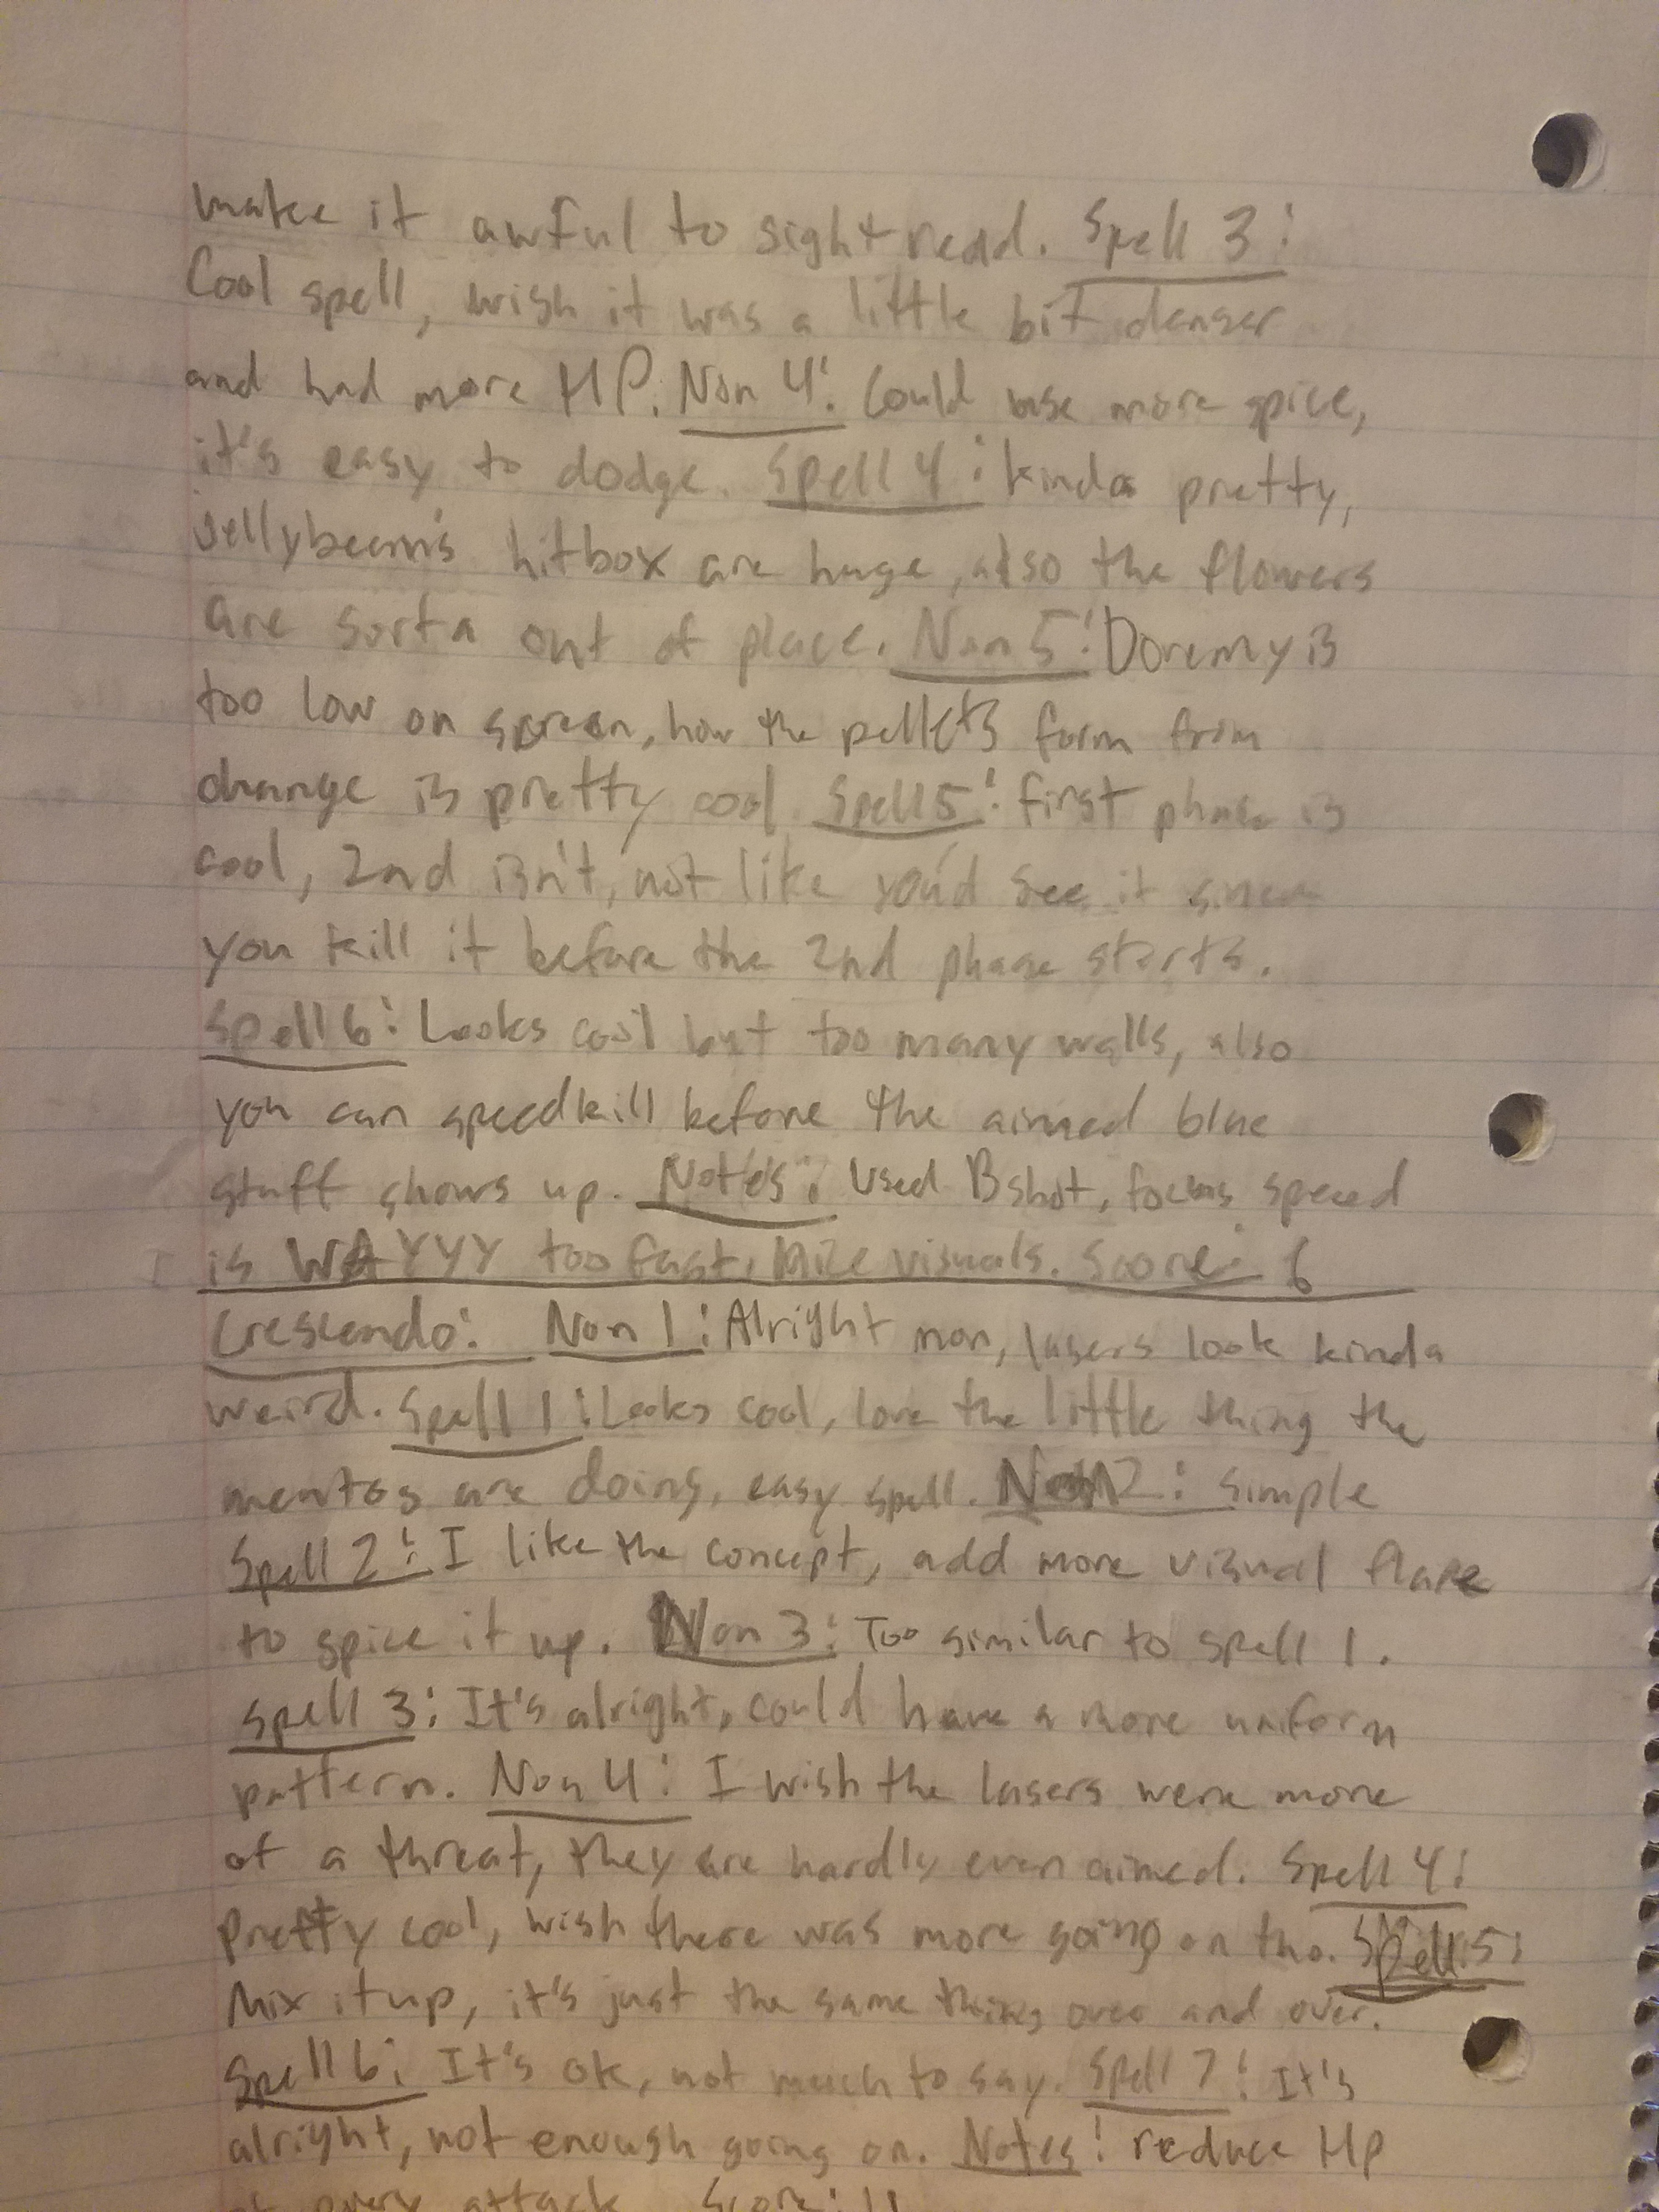 make it awful to sightread. Spell 3:
Cool spell, wish it was a little bit denser
and had more HP. Non 4: Could use more spice,
it's easy to dodge. Spell 4: Kinda pretty,
jellybean's hitbox are huge, also the flowers
are sorta out of place. Non 5: Doremy is
too low on screen, how the pellets form from
change is pretty cool. Spell 5: First phase is
cool, 2nd isn't, not like you'd see it since
you kill it before the 2nd phase starts.
Spell 6: Looks cool but too many walls, also
you can speedkill before the aimed blue
stuff shows up. Notes: Used B shot, focus speed
is WAYYYY too fast, Nice visuals. Score: 6
Crescendo: Non 1: Alright non, lasers look kinda
weird. Spell 1: Looks cool, love the little thing the
mentos are doing, easy spell. Non 2: Simple
Spell 2: I like the concept, add more visual flare
to spice it up. Non 3: Too similar to spell 1.
Spell 3: It's alright, could have a more uniform
pattern. Non 4: I wish the lasers were more
of a threat, they are hardly even aimed. Spell 4:
Pretty cool, wish there was more going on tho. Spell 5:
Mix it up, it's just the same thing over and over.
Spell 6: It's ok, not much to say. Spell 7: It's
alright, not enough going on. Notes: reduce HP
of every attack. Score: 11